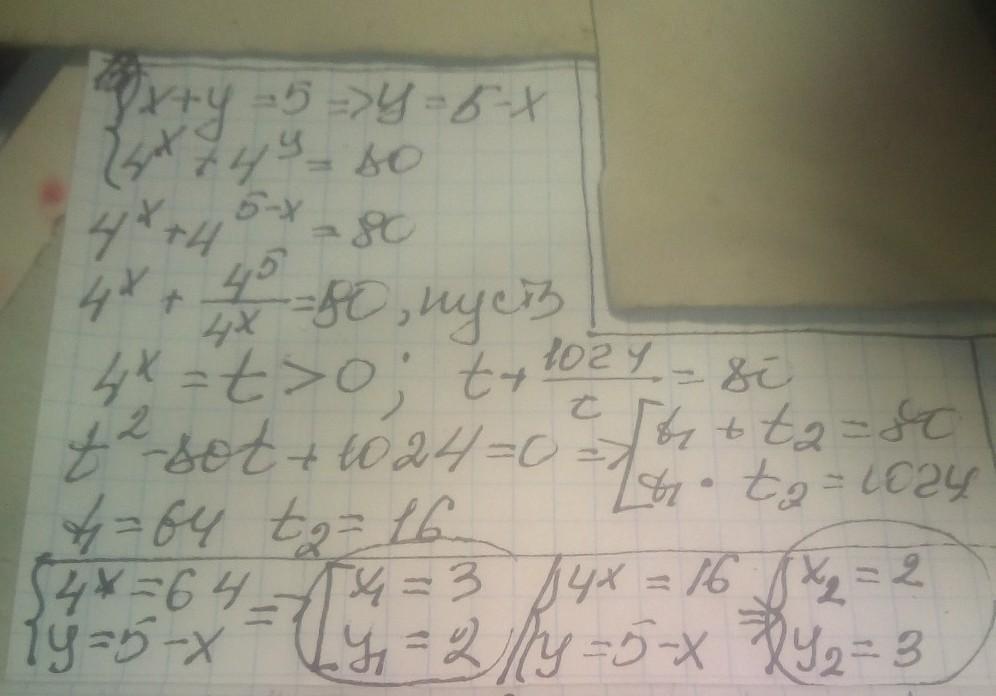 {x+y=5 => y=5-x
{4^x+4^y=80
4^x+4^(5-x)=80
4^x + 4^5/4^x=80, пусть
4^x=t>0; t+1024/t=80
t^2-80t+1024=0 => [t₁+t₂=80
[t₁·t₂=1024
t₁=64 t₂=16
{4^x=64 => [x₁=3 {4^x=16 => {x₂=2
{y=5-x [y₁=2 {y=5-x {y₂=3